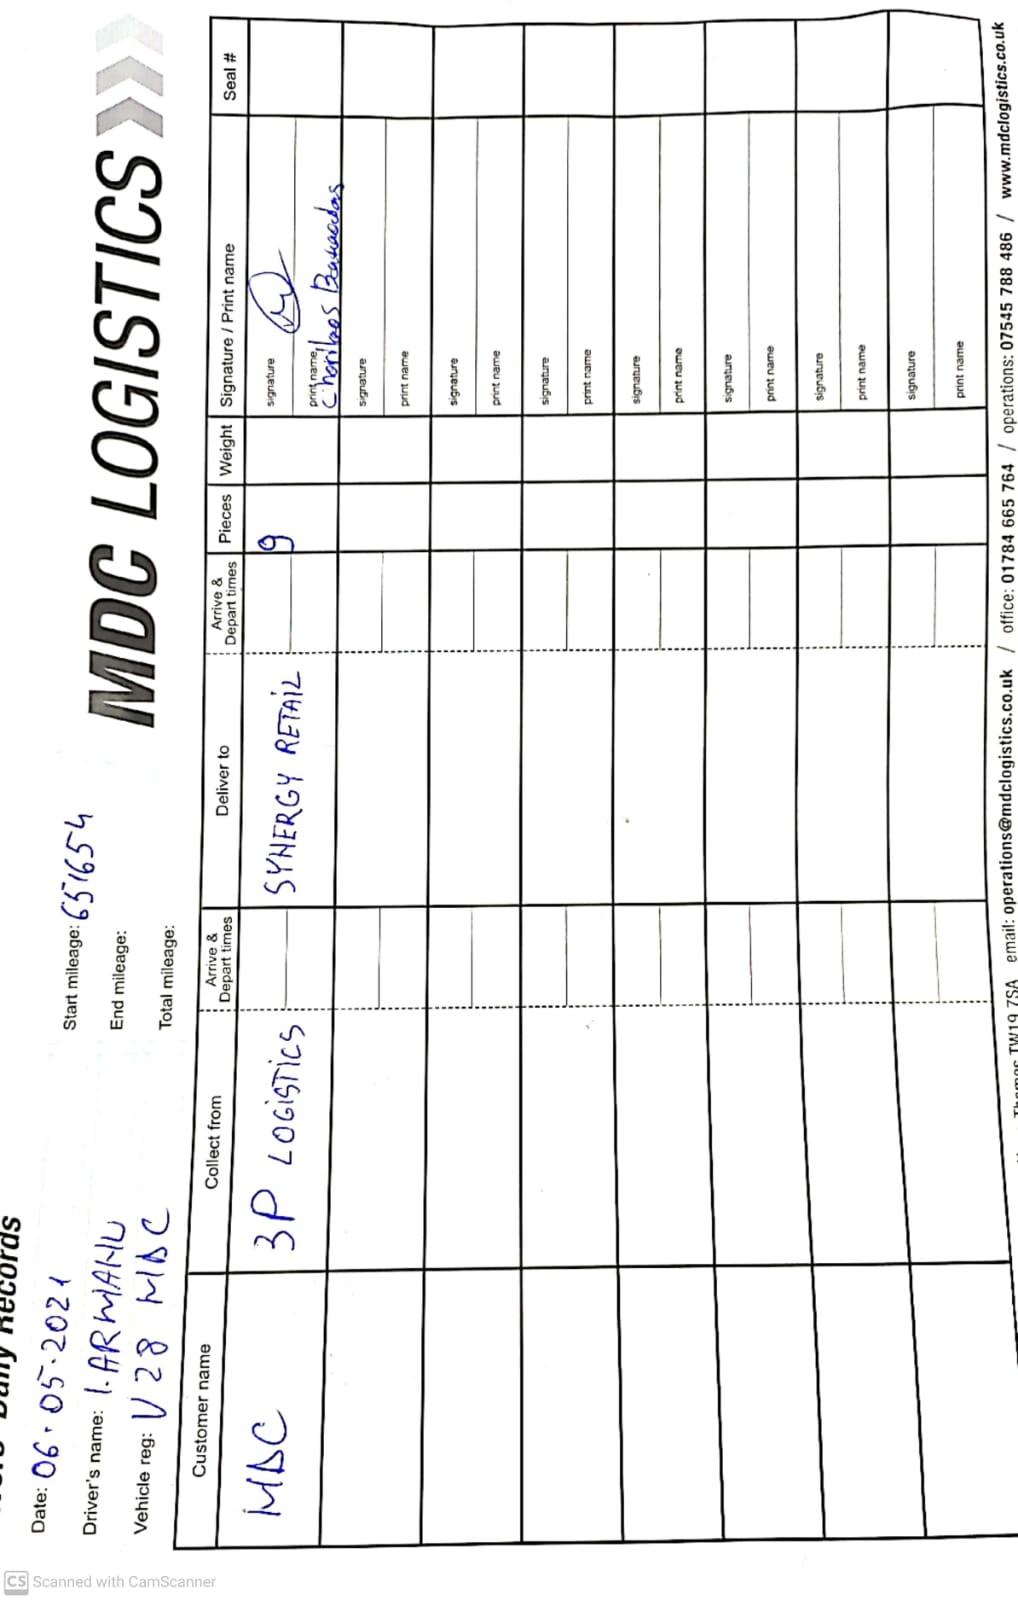 Daily Records
MDC LOGISTICS
Date: 06.05.2021
Start mileage: 651654
Driver's name: I. ARMANU
End mileage:
Vehicle reg: V28 MDC
Total mileage:
Customer name Collect from Arrive & Depart times Deliver to Arrive & Depart times Pieces Weight Signature / Print name Seal #
MDC 3P LOGISTICS SYNERGY RETAIL 9 signature
print name
signature
print name
signature
print name
signature
print name
signature
print name
signature
print name
signature
print name
signature
print name
Thames TW19 7SA email: operations@mdclogistics.co.uk / office: 01784 665 764 / operations: 07545 788 486 / www.mdclogistics.co.uk
CS Scanned with CamScanner